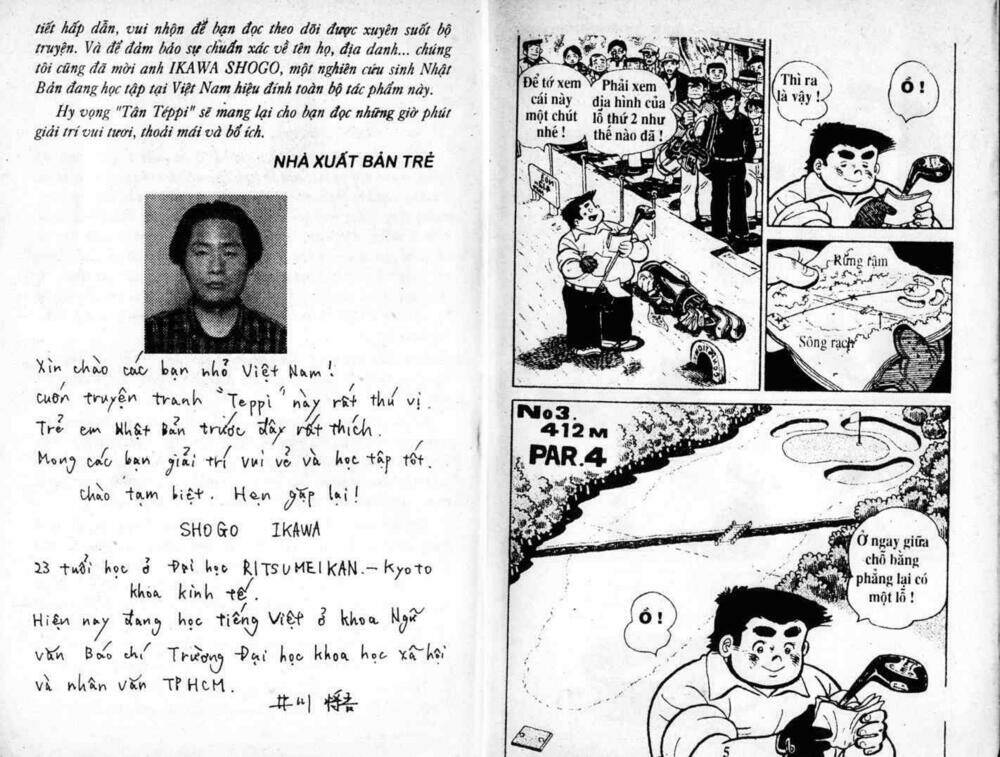 tiết hấp dẫn, vui nhộn để bạn đọc theo dõi được xuyên suốt bộ
truyện. Và để đảm bảo sự chuẩn xác về tên họ, địa danh... chúng
tôi cũng đã mời anh IKAWA SHOGO, một nghiên cứu sinh Nhật
Bản đang học tập tại Việt Nam hiệu đính toàn bộ tác phẩm này.
Hy vọng "Tân Téppi" sẽ mang lại cho bạn đọc những giờ phút
giải trí vui tươi, thoải mái và bổ ích.
NHÀ XUẤT BẢN TRẺ
Xin chào các bạn nhỏ Việt Nam!
cuốn truyện tranh "Teppi" này rất thú vị.
Trẻ em Nhật Bản trước đây rất thích.
Mong các bạn giải trí vui vẻ và học tập tốt.
chào tạm biệt. Hẹn gặp lại!
SHOGO IKAWA
23 tuổi học ở Đại học RITSUMEIKAN.-Kyoto
khoa kinh tế.
Hiện nay đang học tiếng Việt ở khoa Ngữ
văn Báo chí Trường Đại học khoa học xã hội
và nhân văn TPHCM.
井川 将吾
Để tớ xem
cái này
một chút
nhé !
Phải xem
địa hình của
lỗ thứ 2 như
thế nào đã !
Thì ra
là vậy !
Ồ !
Rừng rậm
Sông rạch
No3.
412M
PAR.4
Ở ngay giữa
chỗ bằng
phẳng lại có
một lỗ !
Ồ !
5